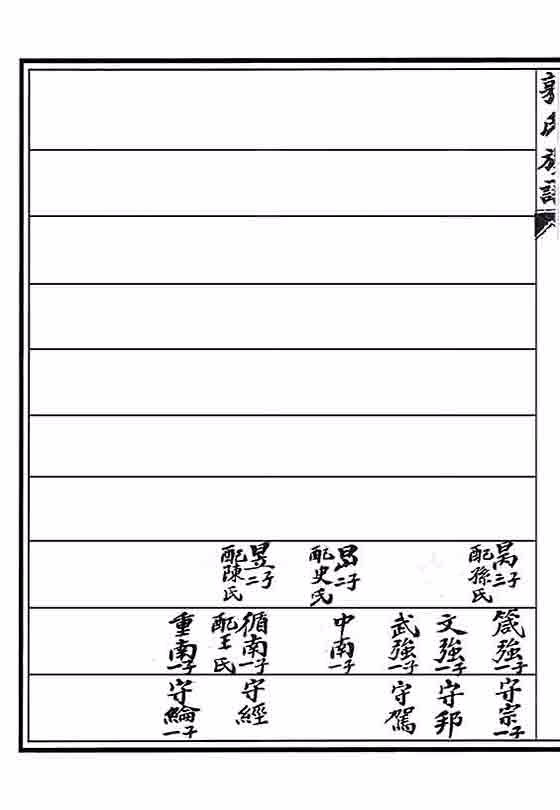 郭氏族譜
昺三子
配孫氏
昌二子
配史氏
昱二子
配陳氏
箴強一子
文強一子
武強一子
中南一子
循南一子
配王氏
重南一子
守宗一子
守邦
守駕
守經
守綸一子